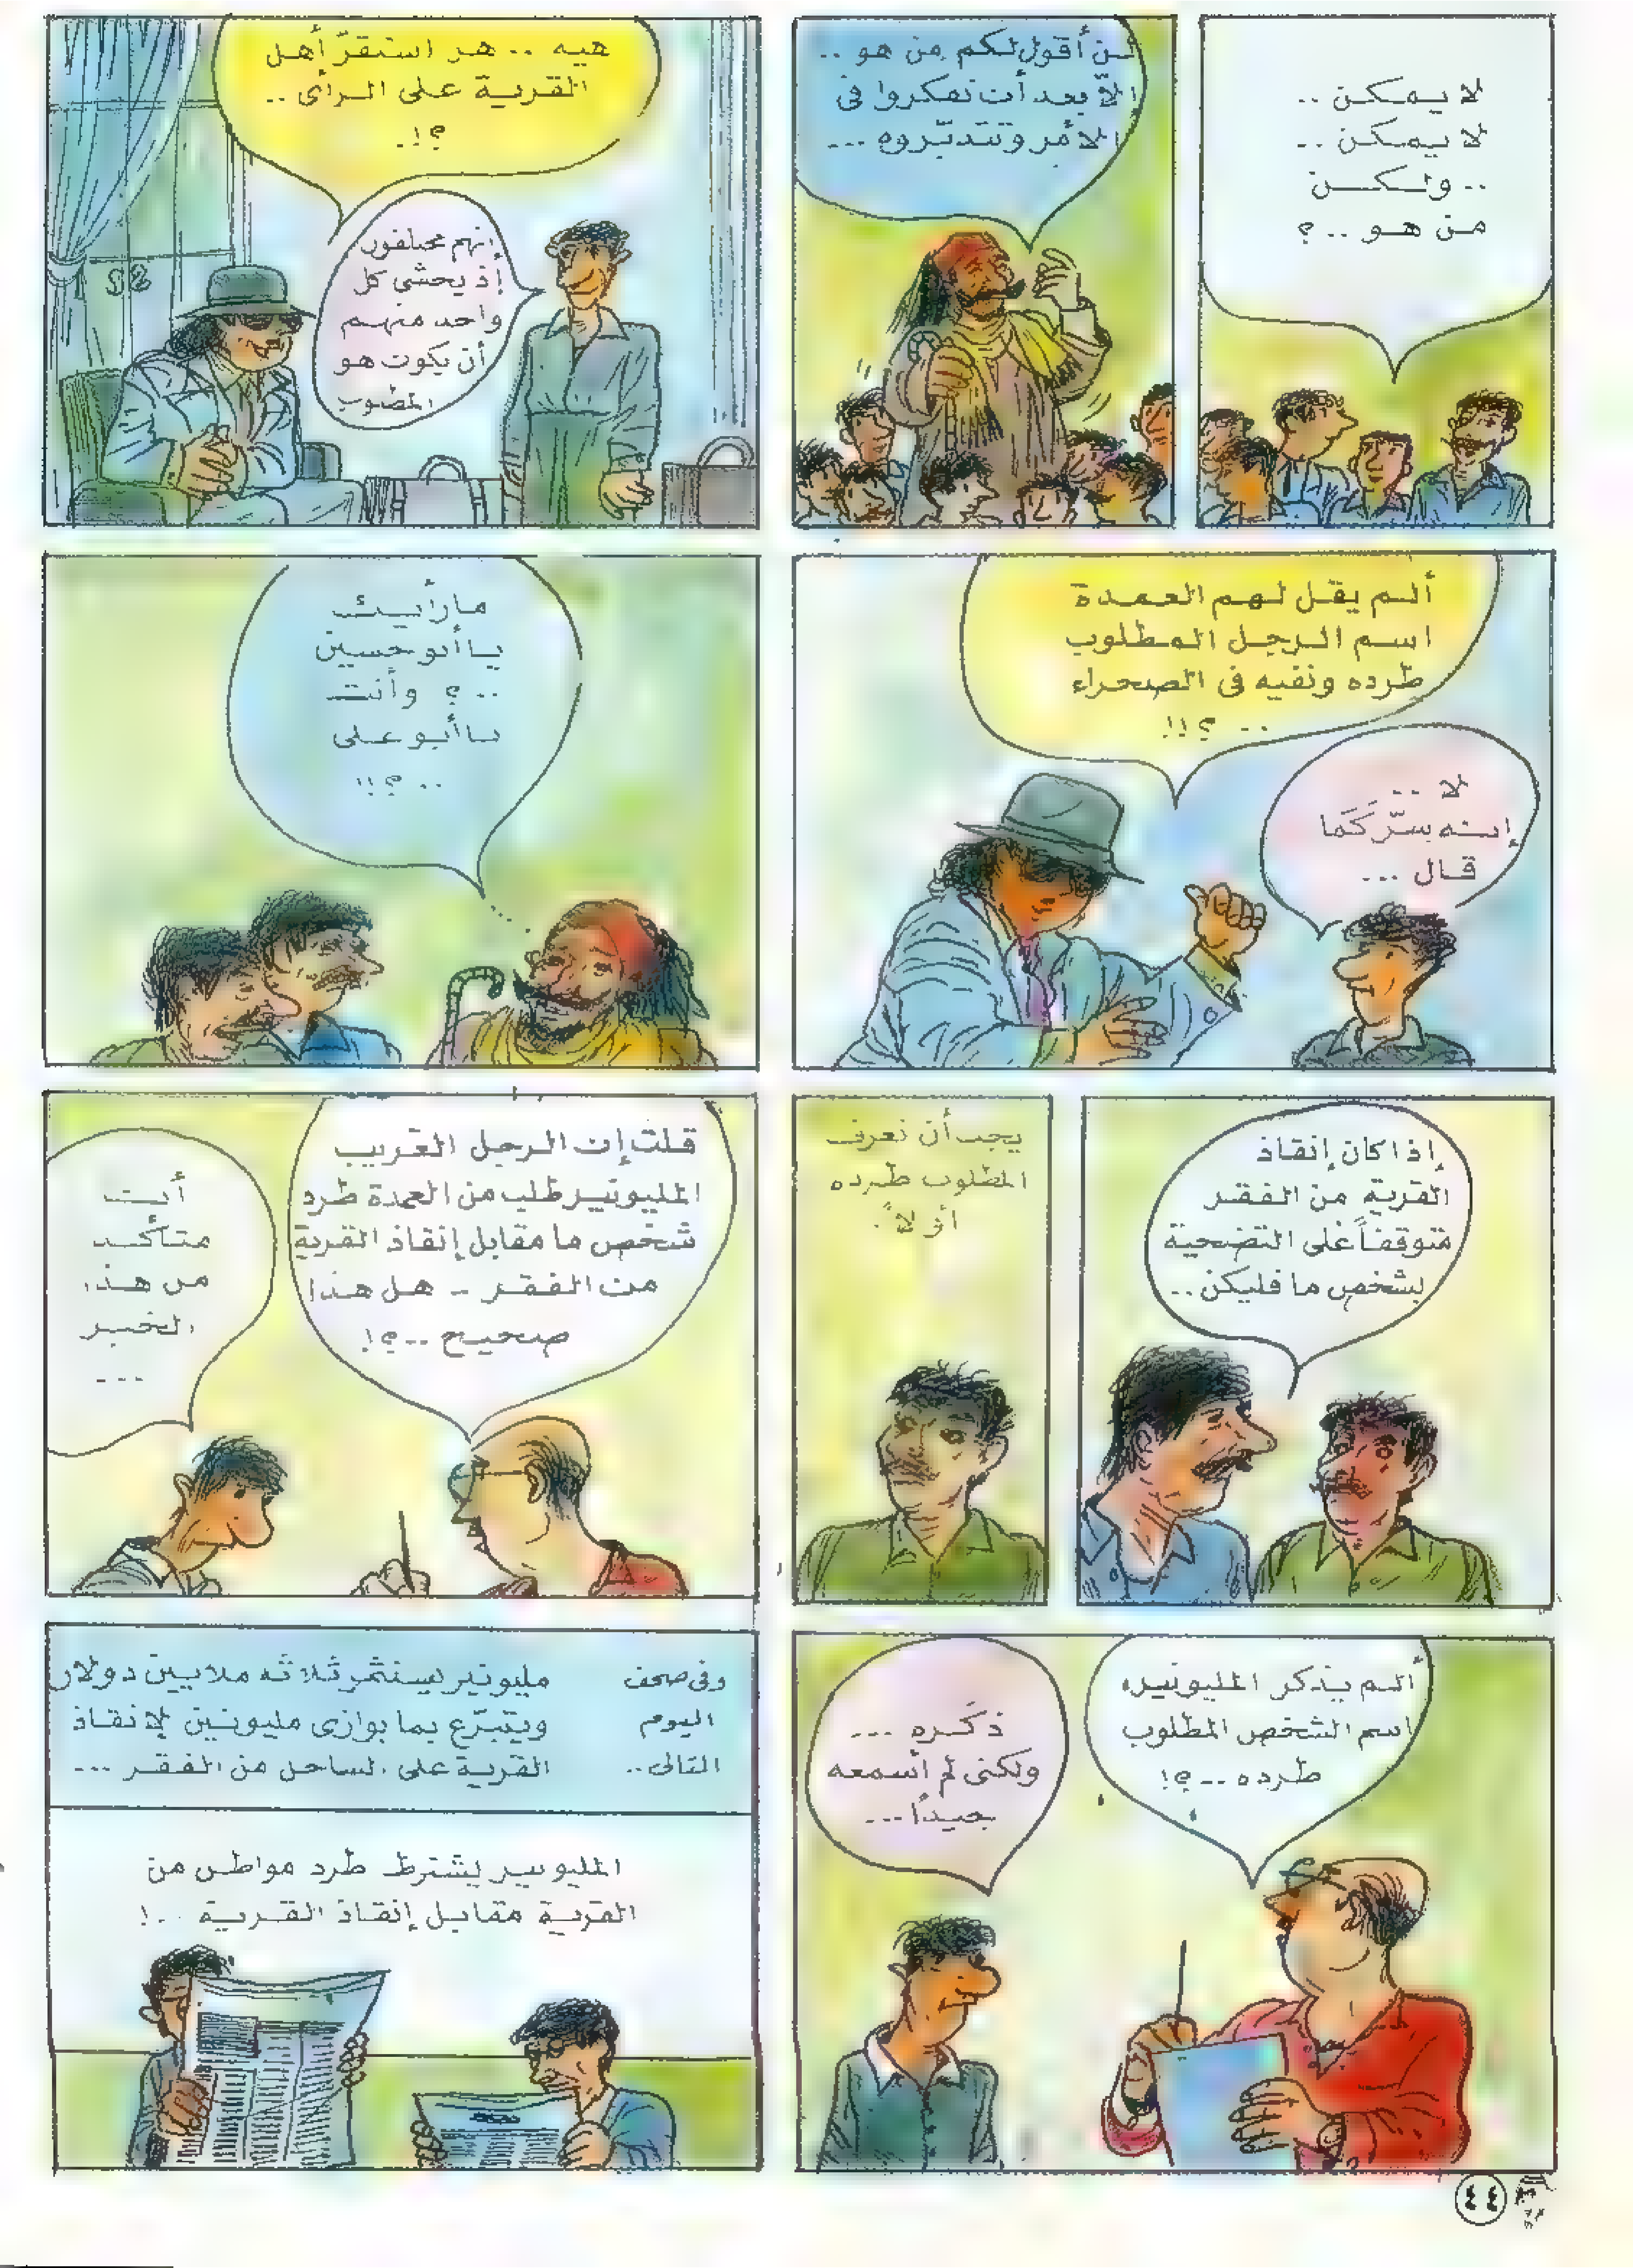 لا يمكن ..
لا يمكن ..
.. ولكن
من هو .. ؟
لن أقول لكم من هو ..
إلا بعد أن تفكروا فى
الأمر وتتدبّروه ...
هيه .. هر استقرّ أهل
القرية على الرأى ..
؟!.
إنهم مختلفون
إذ يخشى كل
واحد منهم
أن يكون هو
المطلوب
ألم يقل لهم العمدة
اسم الرجل المطلوب
طرده ونفيه فى الصحراء
.. ؟!!
لا ..
إنه سرّ كما
قال ...
ما رأيك
يا أبو حسين
.. ؟ وأنت
يا أبو على
.. ؟!!
إذا كان إنقاذ
القرية من الفقر
متوقفاً على التضحية
بشخص ما فليكن ..
يجب أن نعرف
المطلوب طرده
أولاً.
قلت إن الرجل الغريب
المليونير طلب من العمدة طرد
شخص ما مقابل إنقاذ القرية
من الفقر - هل هذا
صحيح ..؟!
أنت
متأكد
من هذا
الخبر
...
ألم يذكر المليونيره
اسم الشخص المطلوب
طرده ..؟!
ذكره ...
ولكنى لم أسمعه
جيدًا ...
وفى صحف
اليوم
التالى ..
مليونير يستثمر ثلاثة ملايين دولار
ويتبرّع بما يوازى مليونين لإنقاذ
القرية على الساحل من الفقر ...
المليونير يشترط طرد مواطن من
القرية مقابل إنقاذ القرية ..!
٤٤